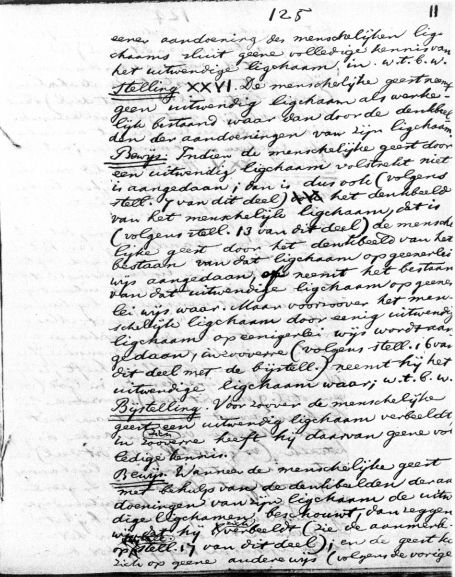 125
11
eener aandoening des menschelijken lig-
chaams sluit geene volledige kennis van
het uitwendige ligchaam in. w.t.b.w.
Stelling XXVI. De menschelijke geest neemt
geen uitwendig ligchaam als werke-
lijk bestaand waar dan door de denkbeel-
den der aandoeningen van zijn ligchaam.
Bewijs. Indien de menschelijke geest door
een uitwendig ligchaam volstrekt niet
is aangedaan; dan is dus ook (volgens
stell. 7 van dit deel) het denkbeeld
van het menschelijk ligchaam, dit is
(volgens stell. 13 van dit deel) de mensche
lijke geest door het denkbeeld van het
bestaan van dat ligchaam op geenerlei
wijs aangedaan, neemt het bestaan
van dat uitwendige ligchaam op geener
lei wijs waar. Maar voorzoover het men-
schelijk ligchaam door eenig uitwendig
ligchaam op eenigerlei wijs wordt aan
gedaan, in zooverre (volgens stell. 16 van
dit deel met de bijstell.) neemt hij het
uitwendige ligchaam waar; w.t.b.w.
Bijstelling Voor zoover de menschelijke
geest een uitwendig ligchaam verbeeldt
in zooverre heeft hij daarvan geene vol
ledige kennis.
Bewijs Wanneer de menschelijke geest
met behulp van de denkbeelden der aan
doeningen van zijn ligchaam de uitwen
dige ligchamen beschouwt, dan zeggen
wij dat hij verbeeldt (zie de aanmerk.
op stell. 17 van dit deel); en de geest k
zich op geene andere wijs (volgens de vorige